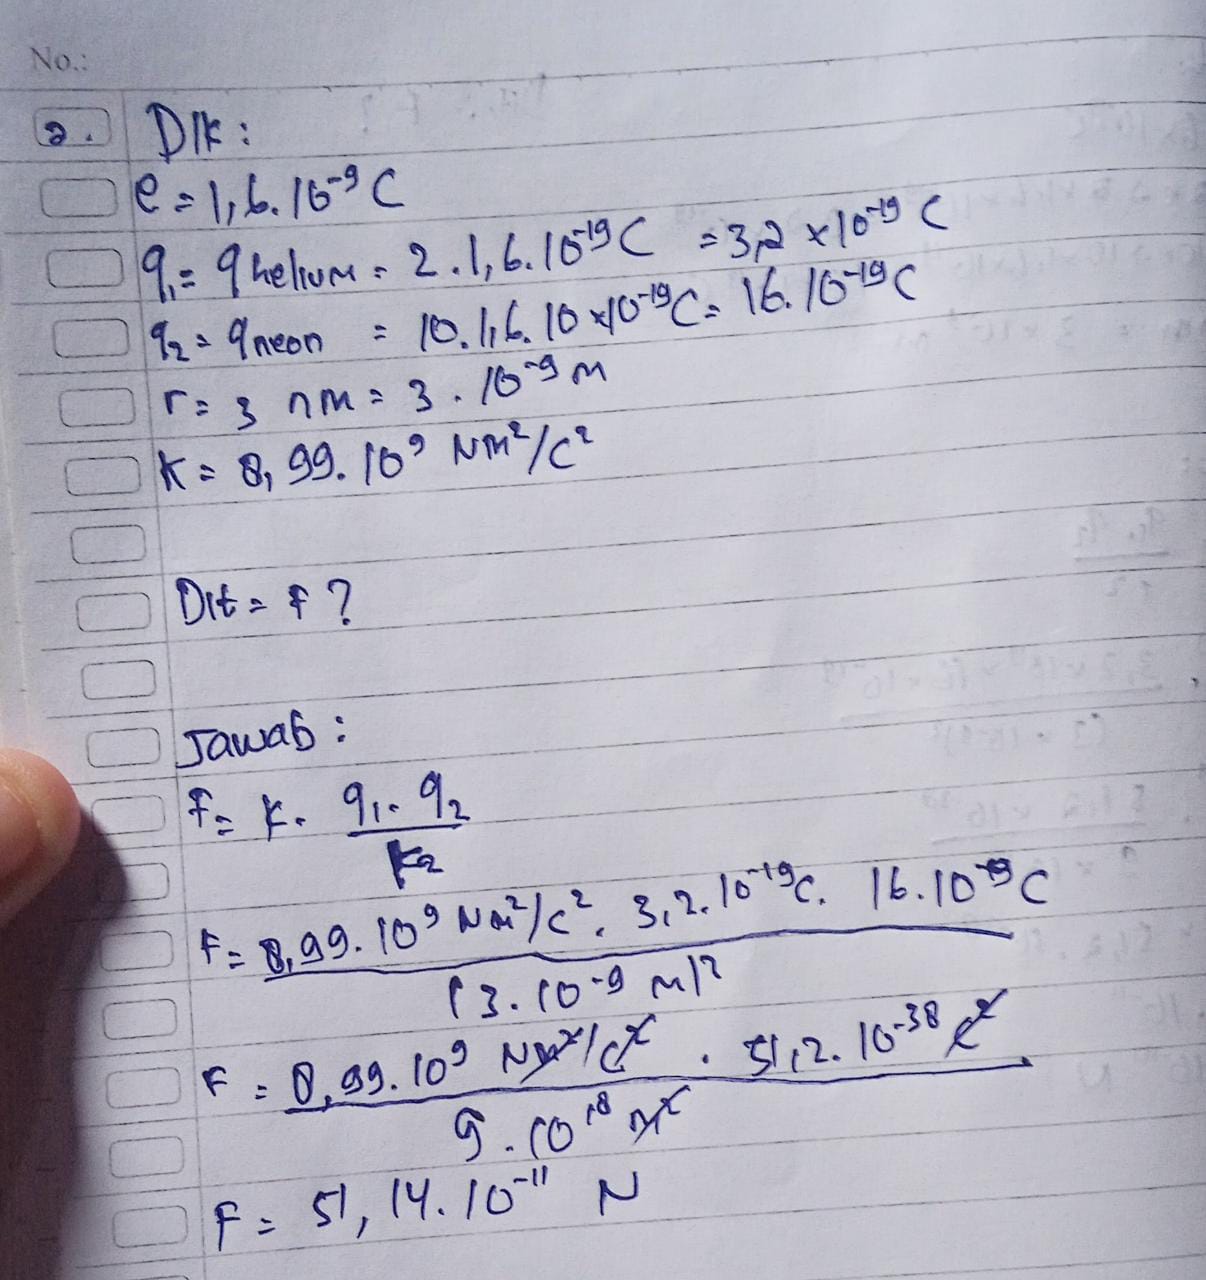 No.:
2. Dik :
e = 1,6. 10⁻⁹ C
q₁ = q helium = 2 . 1,6. 10⁻¹⁹ C = 3,2 x 10⁻¹⁹ C
q₂ = q neon = 10. 1,6. 10 x10⁻¹⁹ C = 16. 10⁻¹⁹ C
r = 3 nm = 3 . 10⁻⁹ m
K = 8,99. 10⁹ Nm²/C²
Dit = F ?
Jawab :
F = K. q₁. q₂
F = 8,99. 10⁹ Nm²/C². 3,2. 10⁻¹⁹ C. 16. 10 C
(3. 10⁻⁹ m)²
F = 8,99. 10⁹ Nm²/C² . 51,2. 10⁻³⁸ C²
9. 10⁻¹⁸ m²
F = 51,14. 10⁻¹¹ N